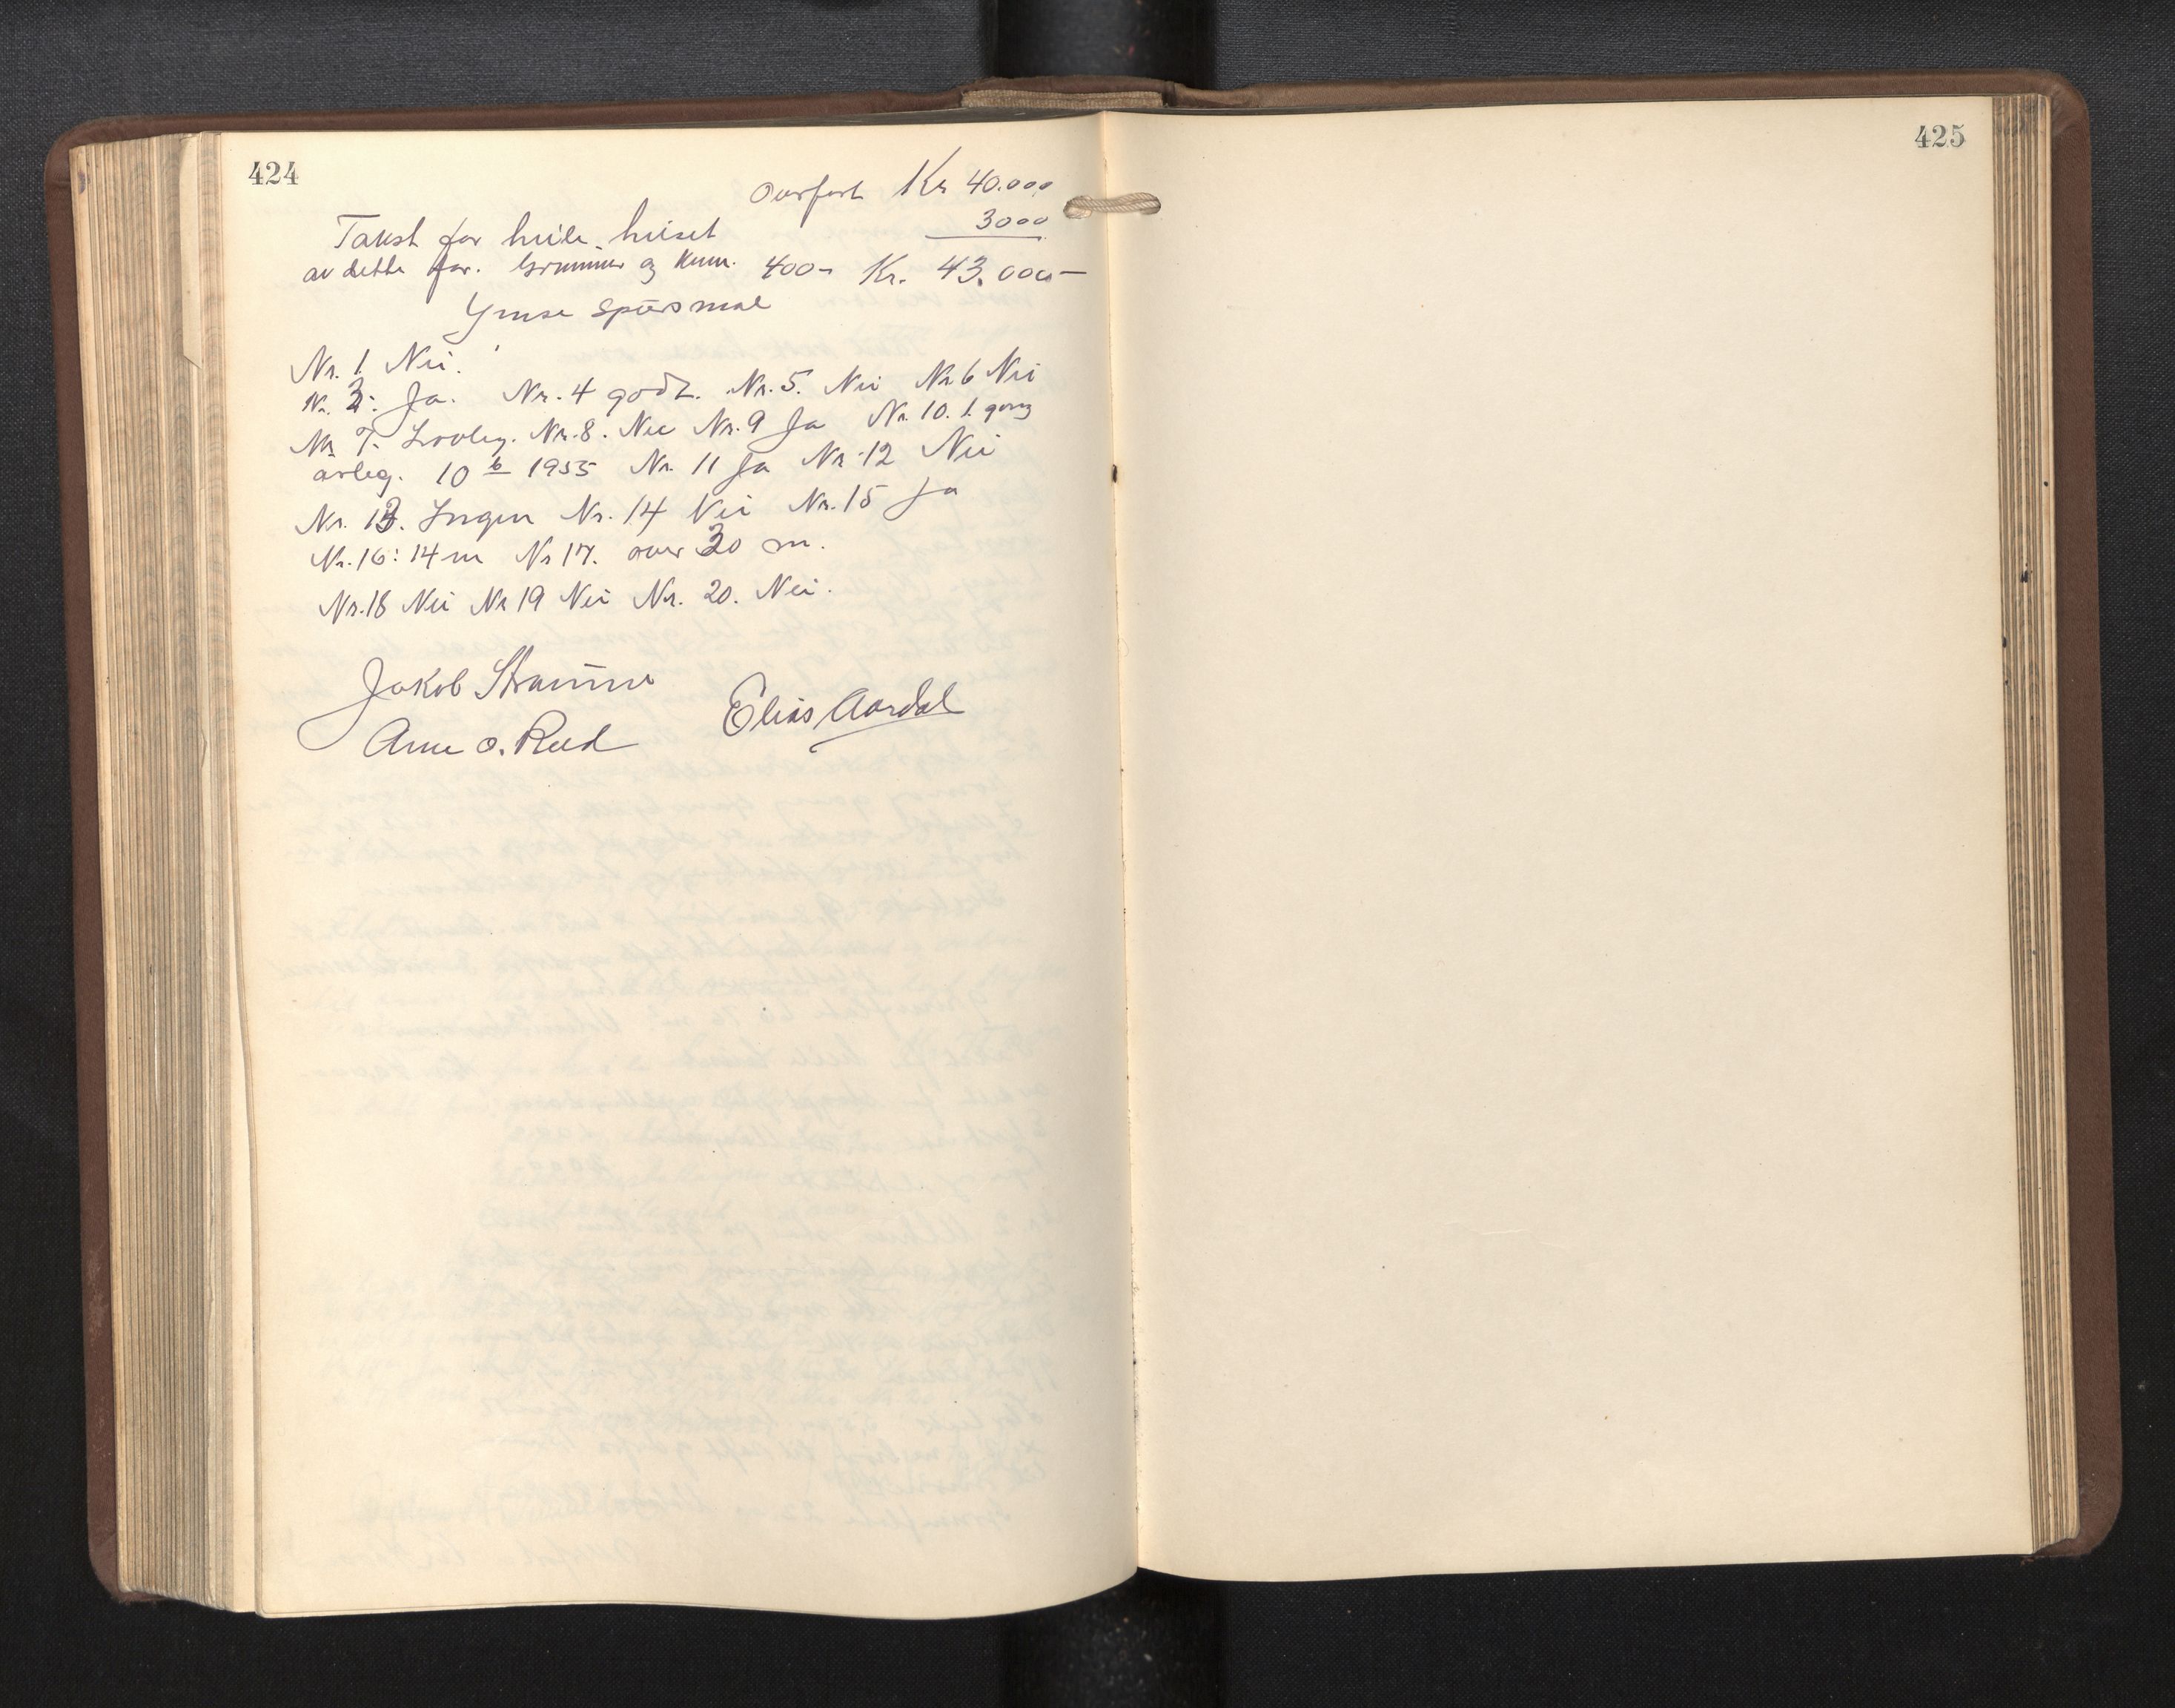 424
425
Overført Kr 40.000
Takst for heile huset 3000
av dette for. Grunnmur og kum. 400- Kr. 43.000-
Ymse spørsmål
Nr. 1. Nei.
Nr. 3. Ja. Nr. 4 godt. Nr. 5. Nei Nr 6 Nei
Nr 7. Lovleg. Nr. 8. Nei Nr. 9 Ja Nr. 10. 1. gong
årleg. 10/6 1955 Nr. 11 Ja Nr 12 Nei
Nr. 13. Ingen Nr. 14 Nei Nr. 15 Ja
Nr. 16: 14 m Nr 17. over 30 m.
Nr. 18 Nei Nr 19 Nei Nr. 20. Nei.
Jakob Straume
Elias Aardal
Arne O. Reed